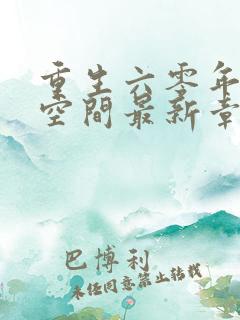 重生六零年
空間最新章
巴博利
未经同意禁止转载